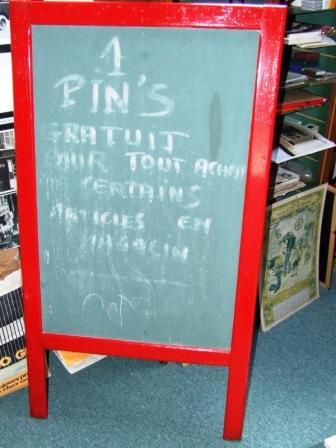 1
PIN'S
GRATUIT
POUR TOUT ACHAT
CERTAINS
ARTICLES EN
MAGASIN